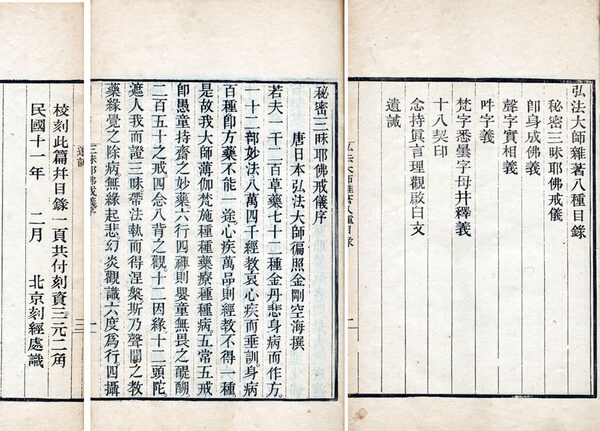 弘法大師雜著八種目錄
秘密三昧耶佛戒儀
卽身成佛義
聲字實相義
吽字義
梵字悉曇字母幷釋義
十八契印
念持眞言理觀啟白文
遺誡
秘密三昧耶佛戒儀序
唐日本弘法大師徧照金剛空海撰
若夫一千二百草藥七十二種金丹悲身病而作方。
一十二部妙法八萬四千經教哀心疾而垂訓。身病
百種卽方藥不能一途心疾萬品則經教不得一種
是故我大師薄伽梵施種種藥療種種病。五常五戒
卽愚童持齋之妙藥六行四禪則嬰童無畏之醍醐
二百五十之戒四念八背之觀十二因緣十二頭陀
遮人我而證三昧帶法執而得湼槃斯乃聲聞之教
藥緣覺之除病無緣起悲幻炎觀識六度爲行四攝
三昧耶佛戒儀序
一
遺誡
三
校刻此篇幷目錄一頁共付刻資三元二角
民國十一年 二月 北京刻經處識